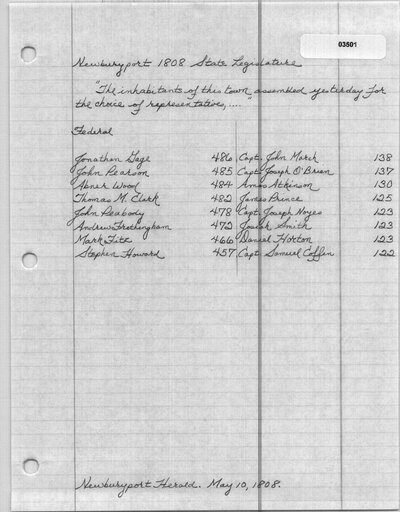 03501
Newburyport 1808 State Legislature
"The inhabitants of this town, assembled yesterday for
the choice of representatives, ...."
Federal
Jonathan Gage 486 Capt. John March 138
John Pearson 485 Capt. Joseph O'Brien 137
Abner Wood 484 Amos Atkinson 130
Thomas M. Clark 482 James Prince 125
John Peabody 478 Capt. Joseph Noyes 123
Andrew Frothingham 472 Josiah Smith 123
Mark Fitz 466 Daniel Horton 123
Stephen Howard 457 Capt. Samuel Coffin 122
Newburyport Herald. May 10, 1808.